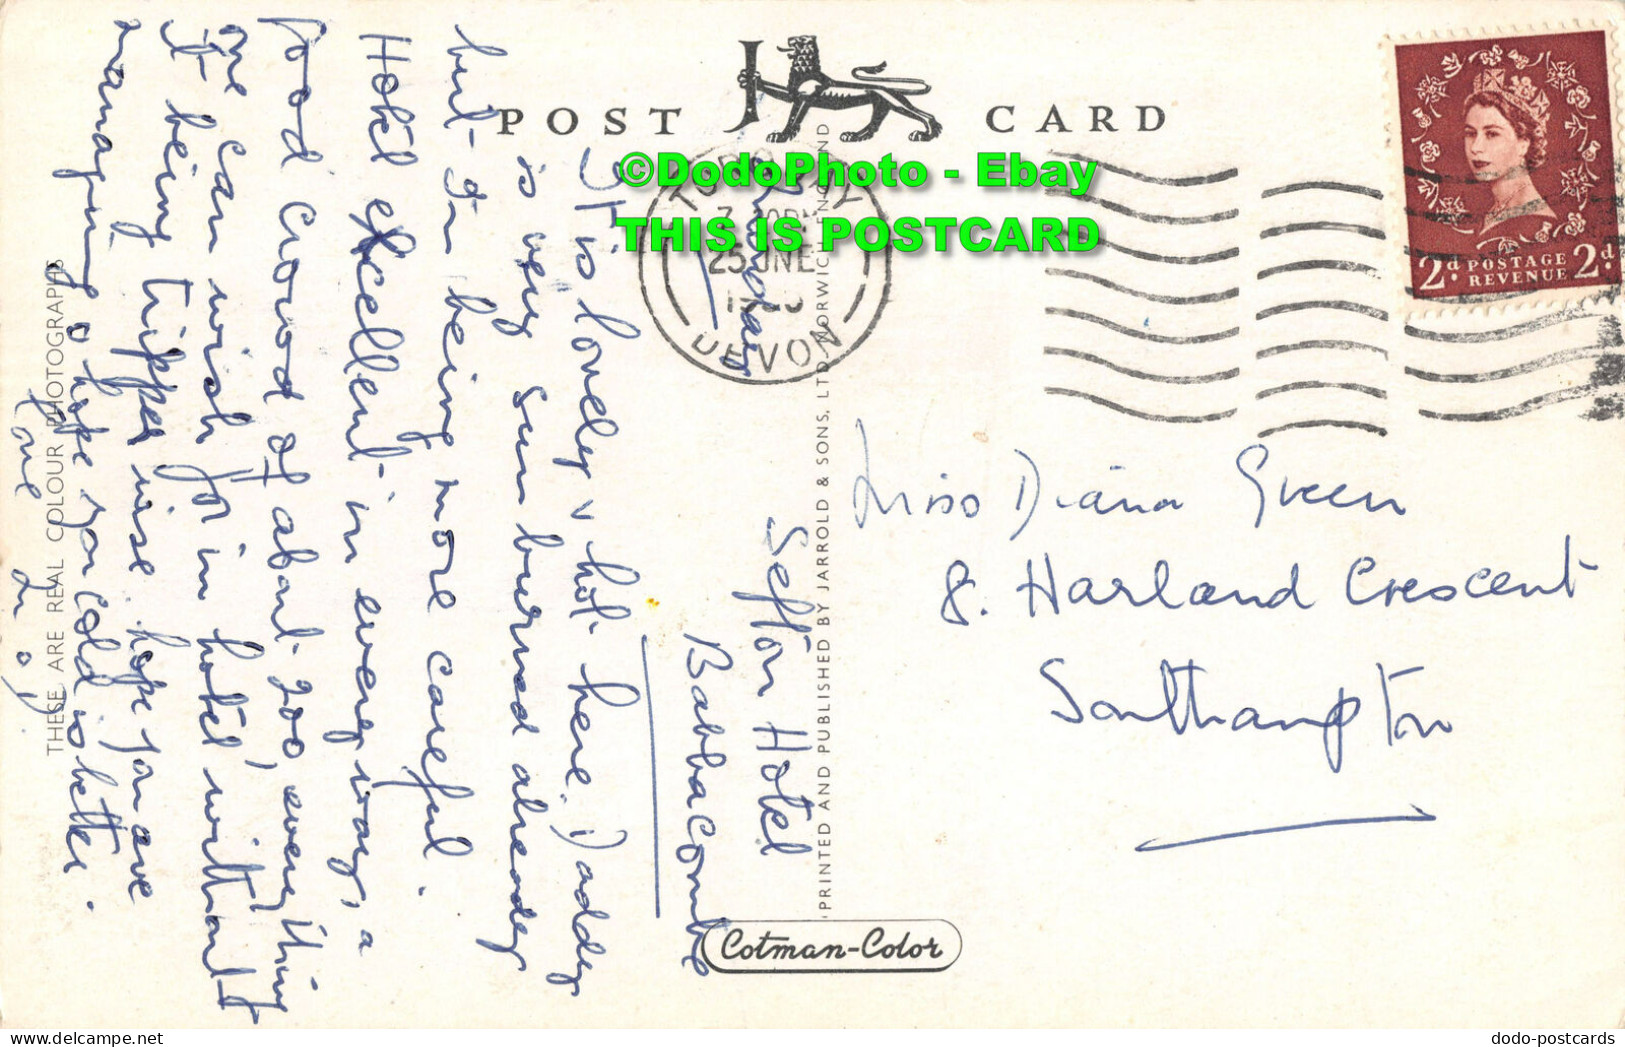 POST CARD
TORQUAY
25 JNE
DEVON
2d POSTAGE REVENUE 2d
©DodoPhoto - Ebay
THIS IS POSTCARD
Sefton Hotel
Babbacombe
Sunday
It is lovely & hot here. Daddy
is very sun burned already
but I'm being more careful.
Hotel excellent in every way, a
good crowd of about 200, everything
one can wish for in hotel without
it being tripper wise. hope you are
managing & hope your cold is better.
Miss Diana Green
8. Harland Crescent
Southampton
THESE ARE REAL COLOUR PHOTOGRAPHS
PRINTED AND PUBLISHED BY JARROLD & SONS, LTD. NORWICH, ENGLAND
Cotman-Color
dodo-postcards